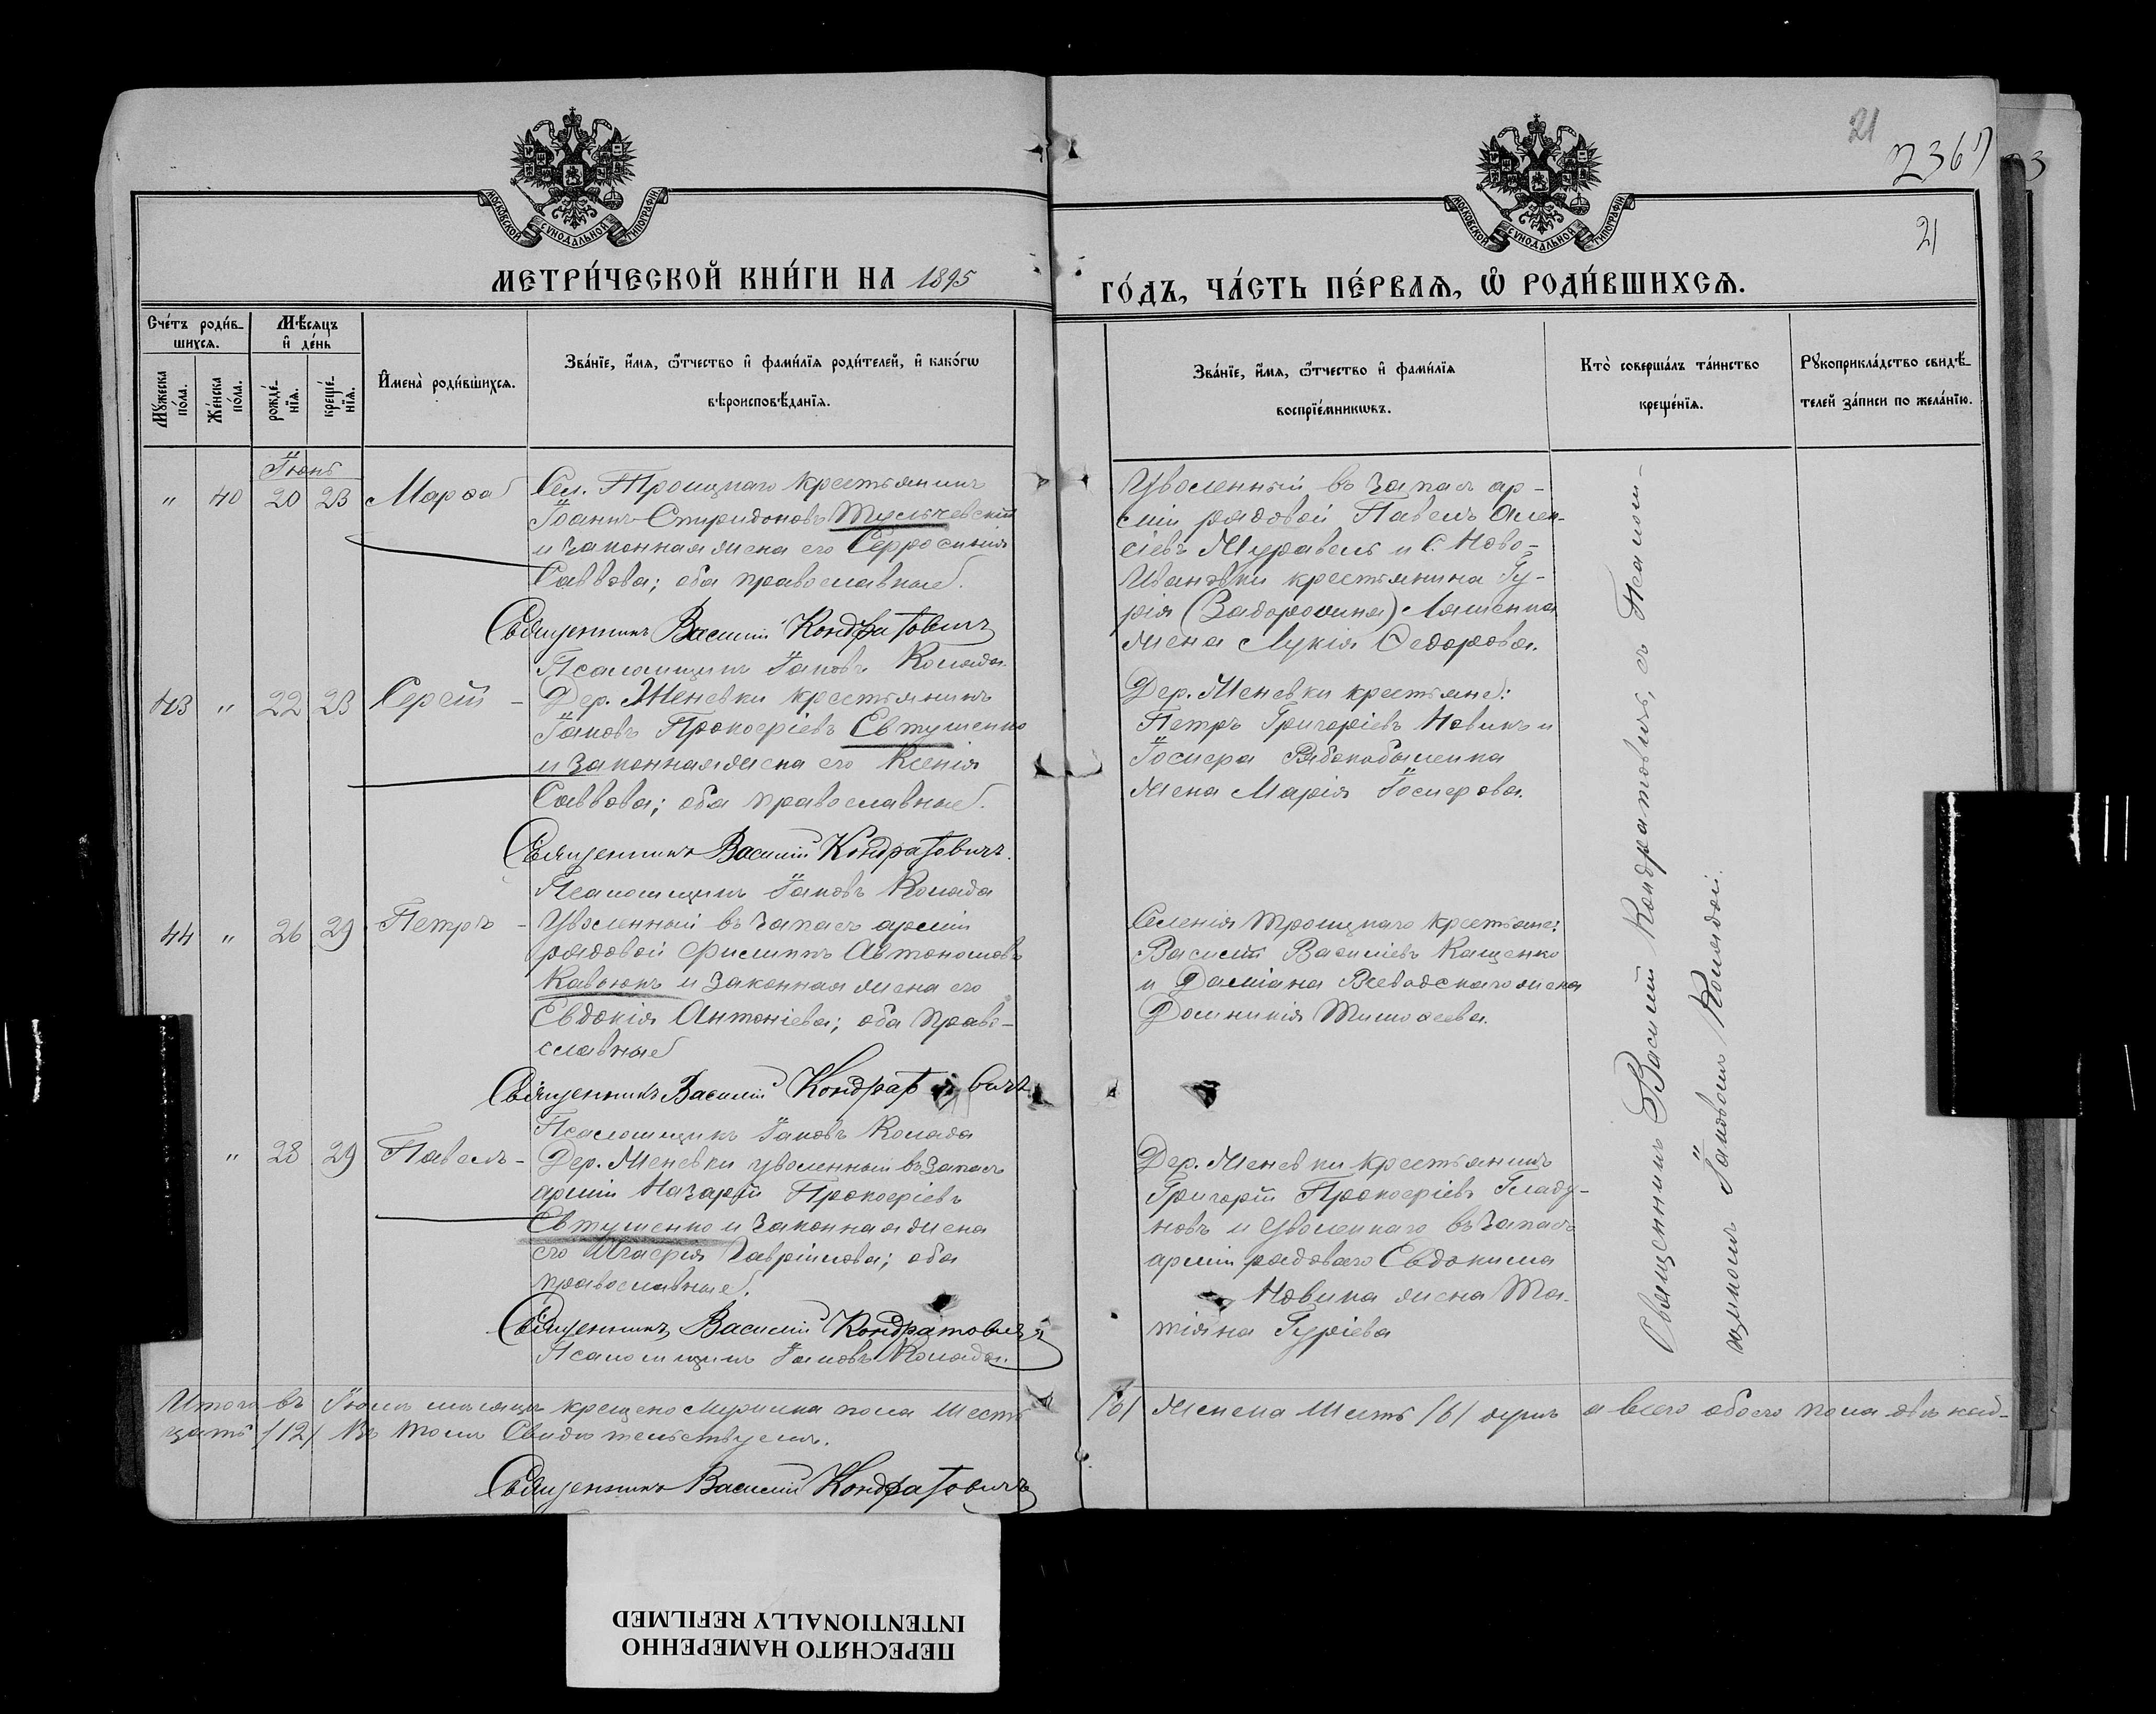 21
236
21
МОСКОВСКОЙ СУНОДАЛЬНОЙ ТИПОГРАФІИ
МОСКОВСКОЙ СУНОДАЛЬНОЙ ТИПОГРАФІИ
МЕТРИ́ЧЕСКОЙ КНИ́ГИ НА 1895
ГО́ДЪ, ЧА́СТЬ ПЕ́РВАѦ, Ѽ РОДИ́ВШИХСѦ.
Сче́тъ роди́в-
шихсѧ.
Мѣ́сѧцъ
и҆ де́нь
Мꙋ́жеска
по́ла.
Же́нска
по́ла.
рожде́-
нїѧ.
креще́-
нїѧ.
И҆мена̀ роди́вшихсѧ.
Зва́нїе, и҆́мѧ, ѻ҆́тчество и҆ фами́лїѧ роди́телей, и҆ како́гѡ
вѣроисповѣ́данїѧ.
Зва́нїе, и҆́мѧ, ѻ҆́тчество и҆ фами́лїѧ
воспрїе́мникѡвъ.
Кто̀ соверша́лъ та́инство
креще́нїѧ.
Рꙋкоприкла́дство свидѣ́-
телей за́писи по жела́нїю.
Іюнь
" 40 20 23 Марѳа
Сел. Троицкаго крестьянинъ
Іоаннъ Спиридоновъ Тульчевскій
и законная жена его Евфросинія
Саввова; оба православные.
Священникъ Василій Кондратовичъ
Псаломщикъ Іаковъ Коляда.
Уволенный въ запасъ ар-
міи рядовой Павелъ Алек-
сіевъ Журавель и С. Ново-
Ивановки крестьянина Гу-
рія (Задорожня) Ляшенка
жена Лукія Ѳедорова.
43 " 22 23 Сергій -
Дер. Женевки крестьянинъ
Іаковъ Прокофіевъ Евтушенко
и законная жена его Ксенія
Саввова; оба православные.
Священникъ Василій Кондратовичъ.
Псаломщикъ Іаковъ Коляда
Дер. Женевки крестьяне:
Петръ Григоріевъ Новикъ и
Іосифа Рябокобыленка
жена Марія Іосифова.
44 " 26 29 Петръ -
Уволенный въ запасъ арміи
рядовой Филиппъ Автономовъ
Кавюкъ и законная жена его
Евдокія Антоніева; оба право-
славные
Священникъ Василій Кондратовичъ
Псаломщикъ Іаковъ Коляда
Селенія Троицкаго крестьяне:
Василій Василіевъ Кащенко
и Даміана жена
Домникія Тимоѳеева.
" 28 29 Павелъ -
Дер. Женевки уволенный въ запасъ
арміи Назарій Прокофіевъ
Евтушенко и законная жена
его Гликерія Гавріилова; оба
православные.
Священникъ Василій Кондратовичъ
Псаломщикъ Іаковъ Коляда.
Дер. Женевки крестьянинъ
Григорій Прокофіевъ Гладу-
новъ и уволеннаго въ запасъ
арміи рядоваго Евдокима
Новика жена Та-
тіяна Гуріева
Священникъ Василій Кондратовичъ, съ Псалом-
щикомъ Іаковомъ Колядой.
Итого въ Іюнѣ мѣсяцѣ крещено мужска пола шесть /6/ женска шесть /6/ душъ а всего обоего пола двѣнад-
цать /12/ Въ томъ свидѣтельствуемъ.
Священникъ Василій Кондратовичъ
ПЕРЕСНЯТО НАМЕРЕННО
INTENTIONALLY REFILMED